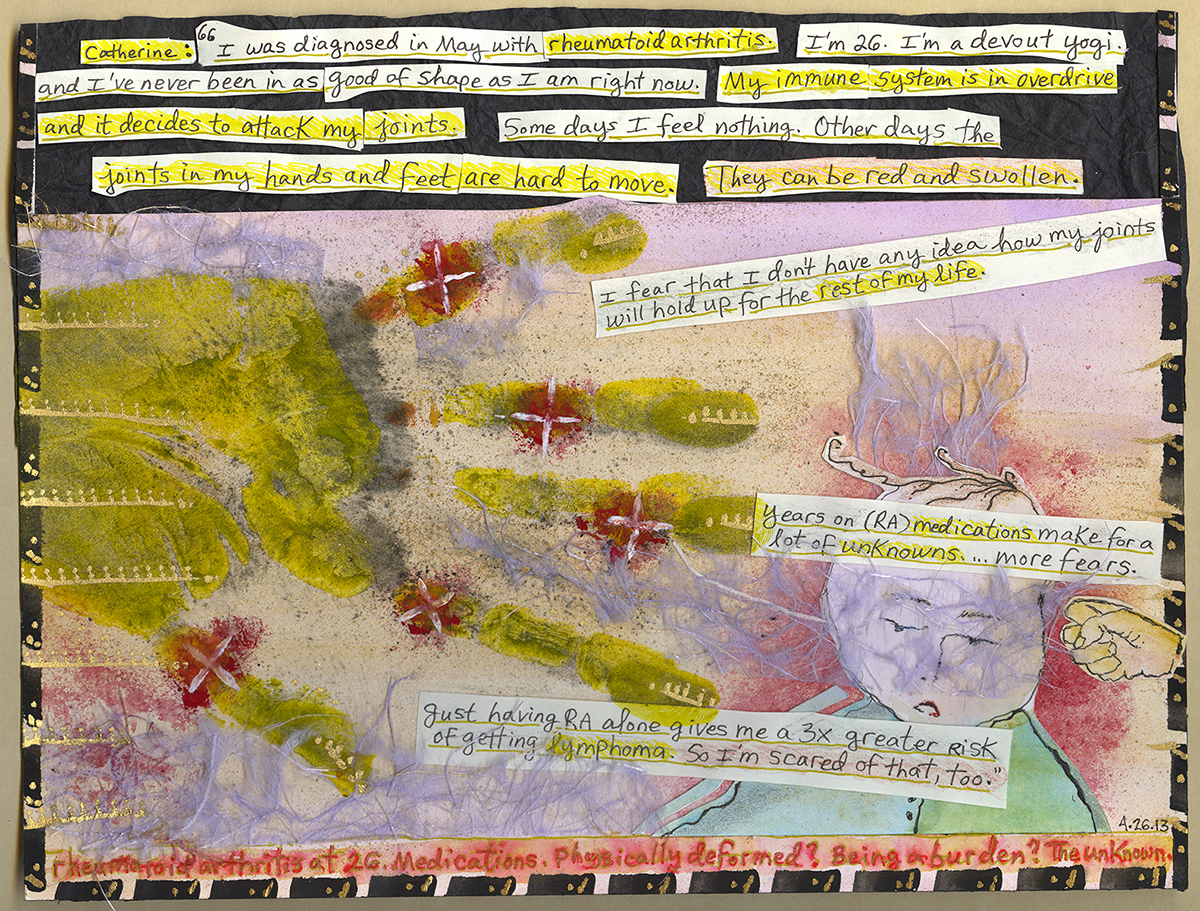 Catherine: "I was diagnosed in May with rheumatoid arthritis. I'm 26. I'm a devout yogi.
and I've never been in as good of shape as I am right now. My immune system is in overdrive
and it decides to attack my joints. Some days I feel nothing. Other days the
joints in my hands and feet are hard to move. They can be red and swollen.
I fear that I don't have any idea how my joints
will hold up for the rest of my life.
Years on (RA) medications make for a
lot of unknowns. ... more fears.
Just having RA alone gives me a 3x greater risk
of getting lymphoma. So I'm scared of that, too."
4.26.13
rheumatoid arthritis at 26. Medications. Physically deformed? Being a burden? The unknown.